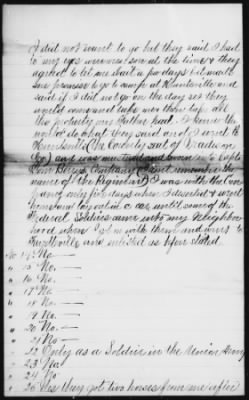 I did not want to go but they said I had
to my eyes were sore at the time & they
agreed to let me wait a few days but made
me promise to go to camp at Huntsville and
said if I did not go on the day set they
would come and take me then take all
the property my Father had. I knew they
would do what they said and so I went to
Huntsville (the County seat of Madison
Co.) and was mustered and sworn into Capt
Company (I dont remember the
name of the Regiment) I was with the Com
pany only five days when I deserted & went
home and lay out until some of the
Federal Soldiers came into my Neighbor
hood when I got in with them and went to
Fayetteville and enlisted as before stated.
No 14 No. —
" 15 No. —
" 16 No. —
" 17 No —
" 18 No. —
" 19 No. —
" 20 No. —
" 21 No —
" 22 Only as a Soldier in the Union Army
" 23 No.
" 24 No
" 25 Yes they got two horses from me after